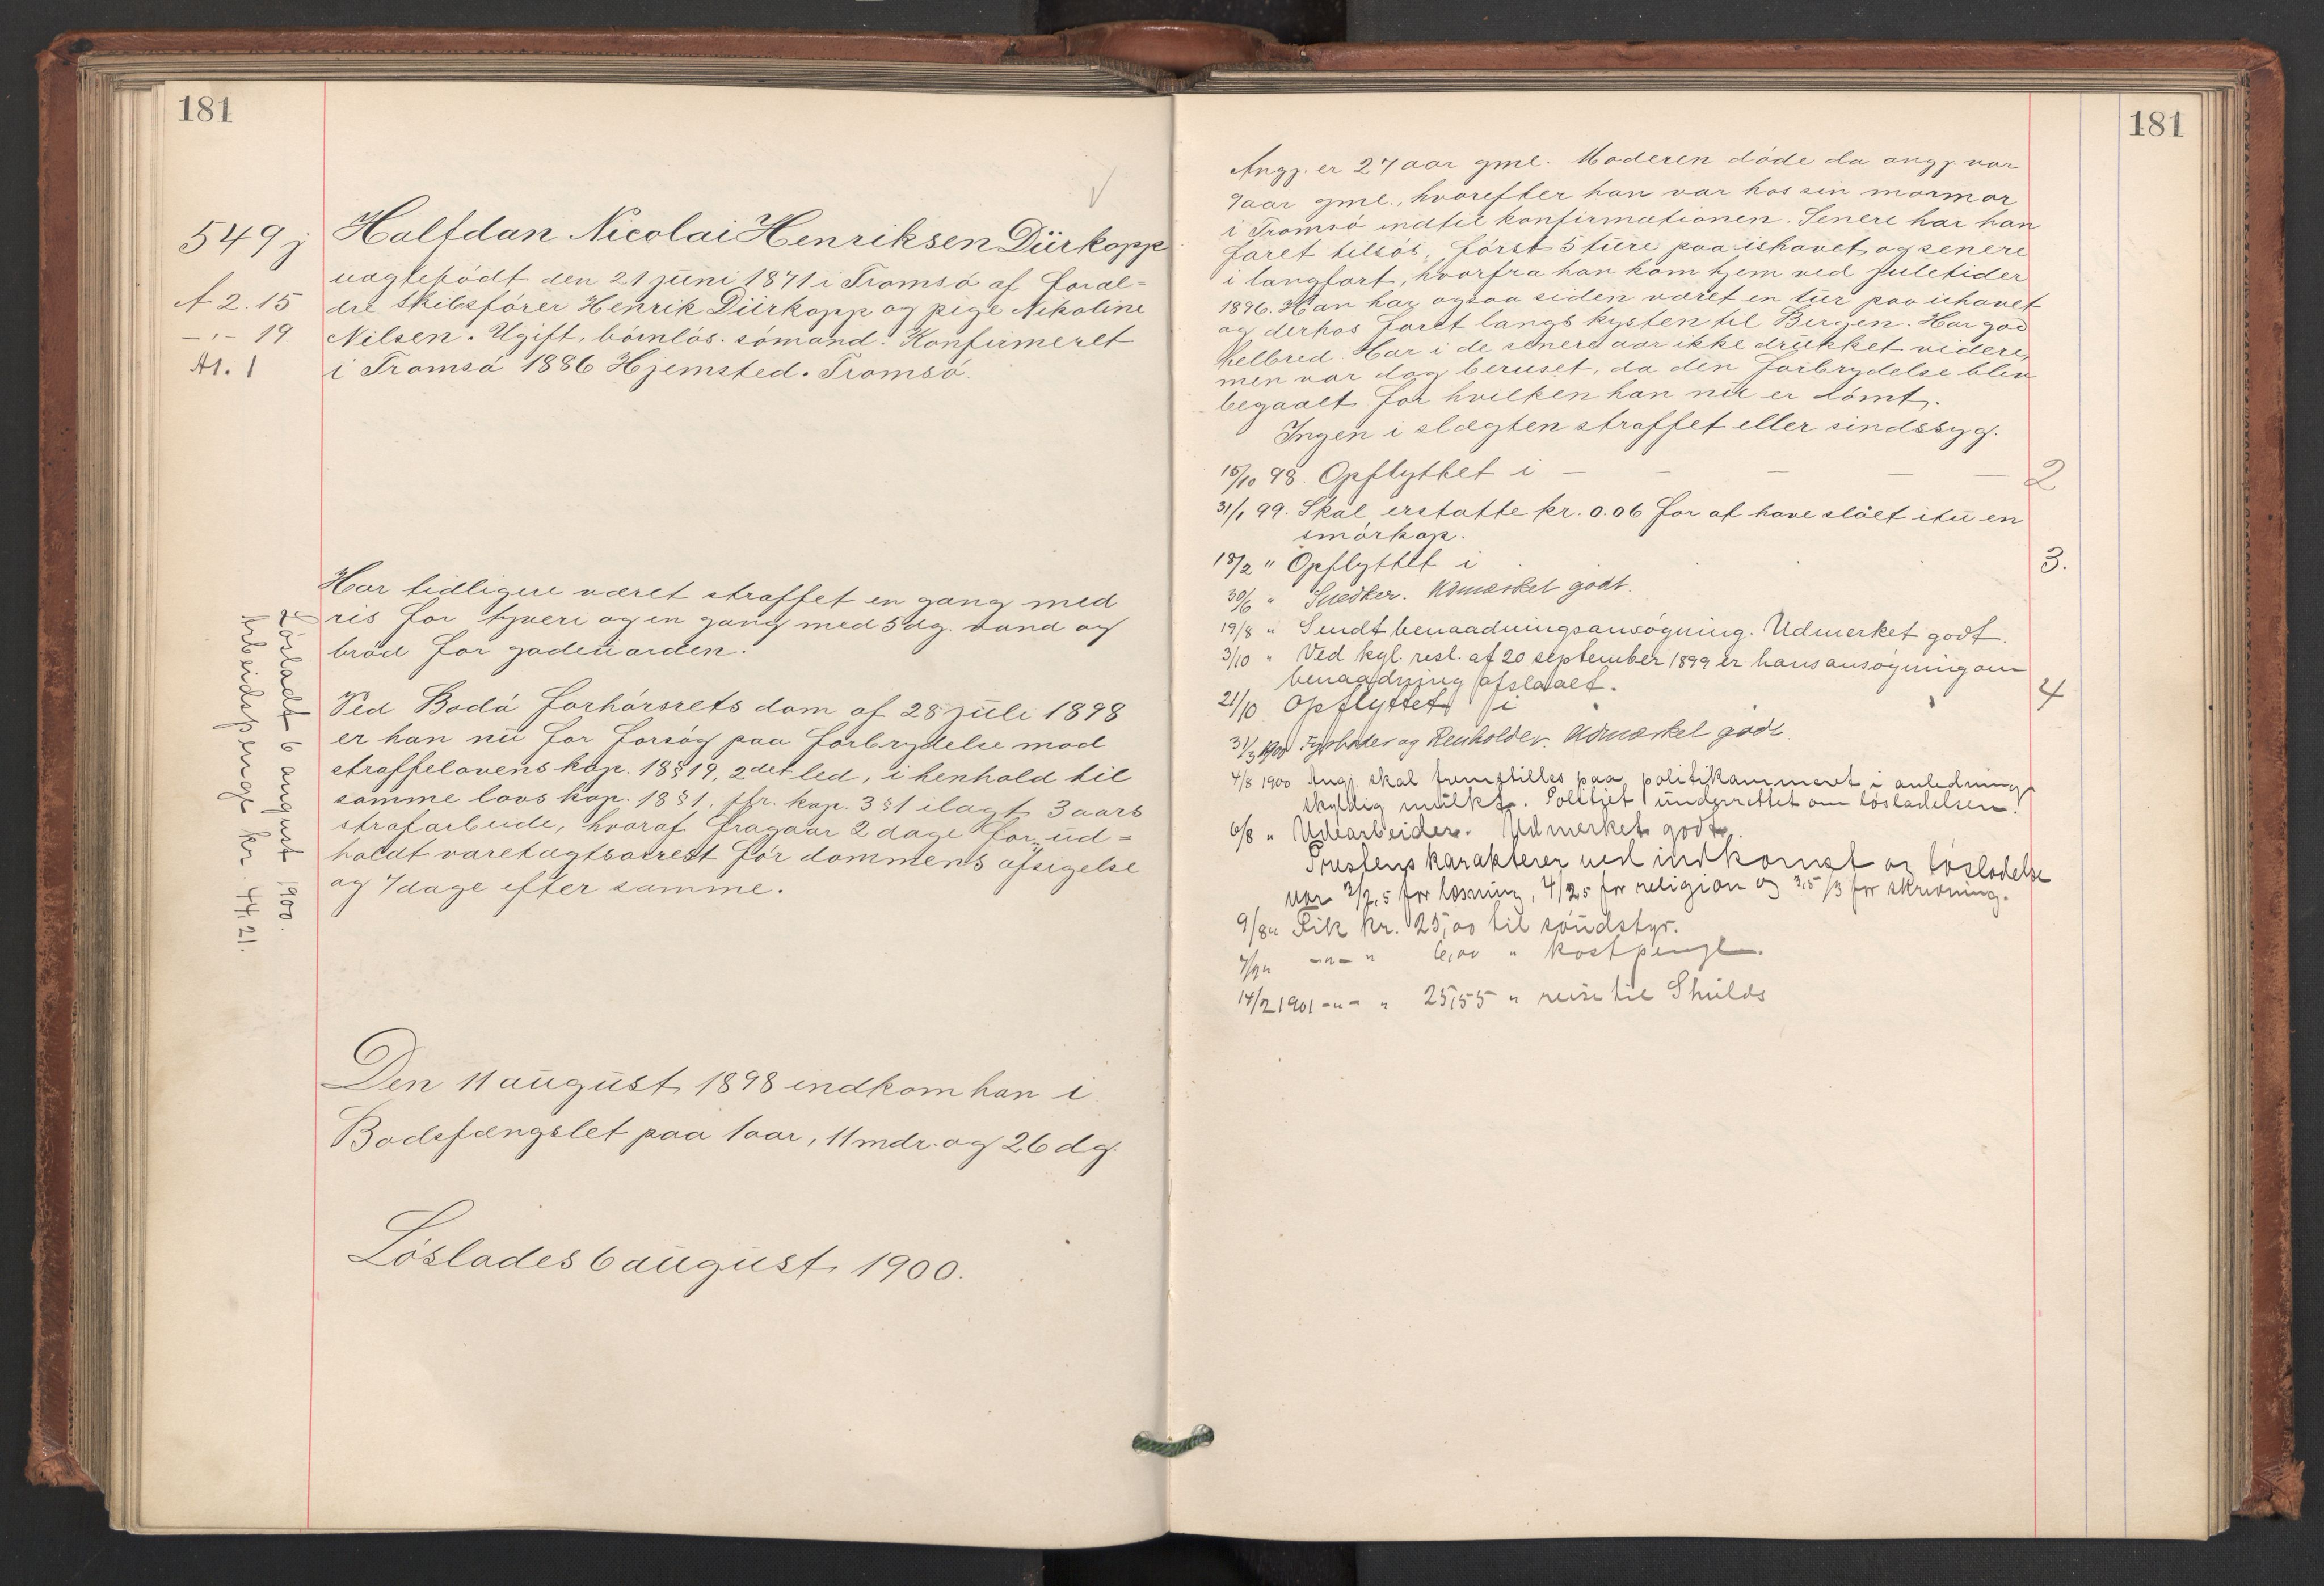 181
549 j
A 2.15
-"- 19.
Ar. 1
Halfdan Nicolai Henriksen Dürkopp
uægtefødt den 21 juni 1871 i Tromsø af foræl-
dre skibsfører Henrik Dürkopp og pige Nikoline
Nilsen. Ugift, børnløs. sømand. Konfirmeret
i Tromsø 1886 Hjemsted. Tromsø.
Har tidligere været straffet en gang med
ris for tyveri og en gang med 5 dg. vand og
brød for gadeuorden.
Ved Bodø forhørsrets dom af 28 juli 1898
er han nu for forsøg paa forbrydelse mod
straffelovens kap. 18 § 19, 2det led, i henhold til
samme lovs kap. 18 § 1. jfr. kap. 3 § 1 ilagt 3 aars
strafarbeide, hvoraf fragaar 2 dage for ud-
holdt varetægtsarrest før dommens afsigelse
og 7 dage efter samme.
Løsladt 6 august 1900.
Arbeidspenge kr. 44,21.
Den 11 august 1898 indkom han i
Bodsfængslet paa 1 aar, 11 mdr. og 26 dg.
Løslades 6 august 1900.
181
Angj. er 27 aar gml. Moderen døde da angj. var
9 aar gml., hvorefter han var hos sin mormor
i Tromsø indtil konfirmationen. Senere har han
faret tilsøs, først 5 ture paa ishavet og senere
i langfart, hvorfra han kom hjem ved juletider
1896. Han har ogsaa siden været en tur paa ishavet
og derhos faret langs kysten til Bergen. Har god
helbred. Har i de senere aar ikke drukket videre,
men var dog beruset, da den forbrydelse blev
begaaet for hvilken han nu er dømt.
Ingen i slægten straffet eller sindssyg.
15/10 98. Opflyttet i — — — — — 2
31/1 99. Skal erstatte kr. 0.06 for at have slået itu en
smørkop.
18/2 " Opflyttet i 3.
30/6 " Snedker. Udmærket godt.
19/8 " Sendt benaadningsansøgning. Udmerket godt.
3/10 " Ved kgl. resl. af 20 september 1899 er hans ansøgning om
benaadning afslaaet.
21/10 Opflyttet i 4
31/3 1900 Fyrbøder og Renholder. Udmærket godt.
4/8 1900 Angj. skal fremstilles paa politikammeret i anledning
skyldig mulkt. Politiet underrettet om løsladelsen.
6/8 " Udearbeider. Udmerket godt.
Prestens karakterer ved indkomst og løsladelse
var 2/2,5 for læsning, 4/2,5 for religion og 3,5/3 for skrivning.
9/8 " Fik kr. 25,00 til søudstyr.
-"- " 6,00 " kostpenge.
14/2 1901 -"- " 25,55 " reise til Shields